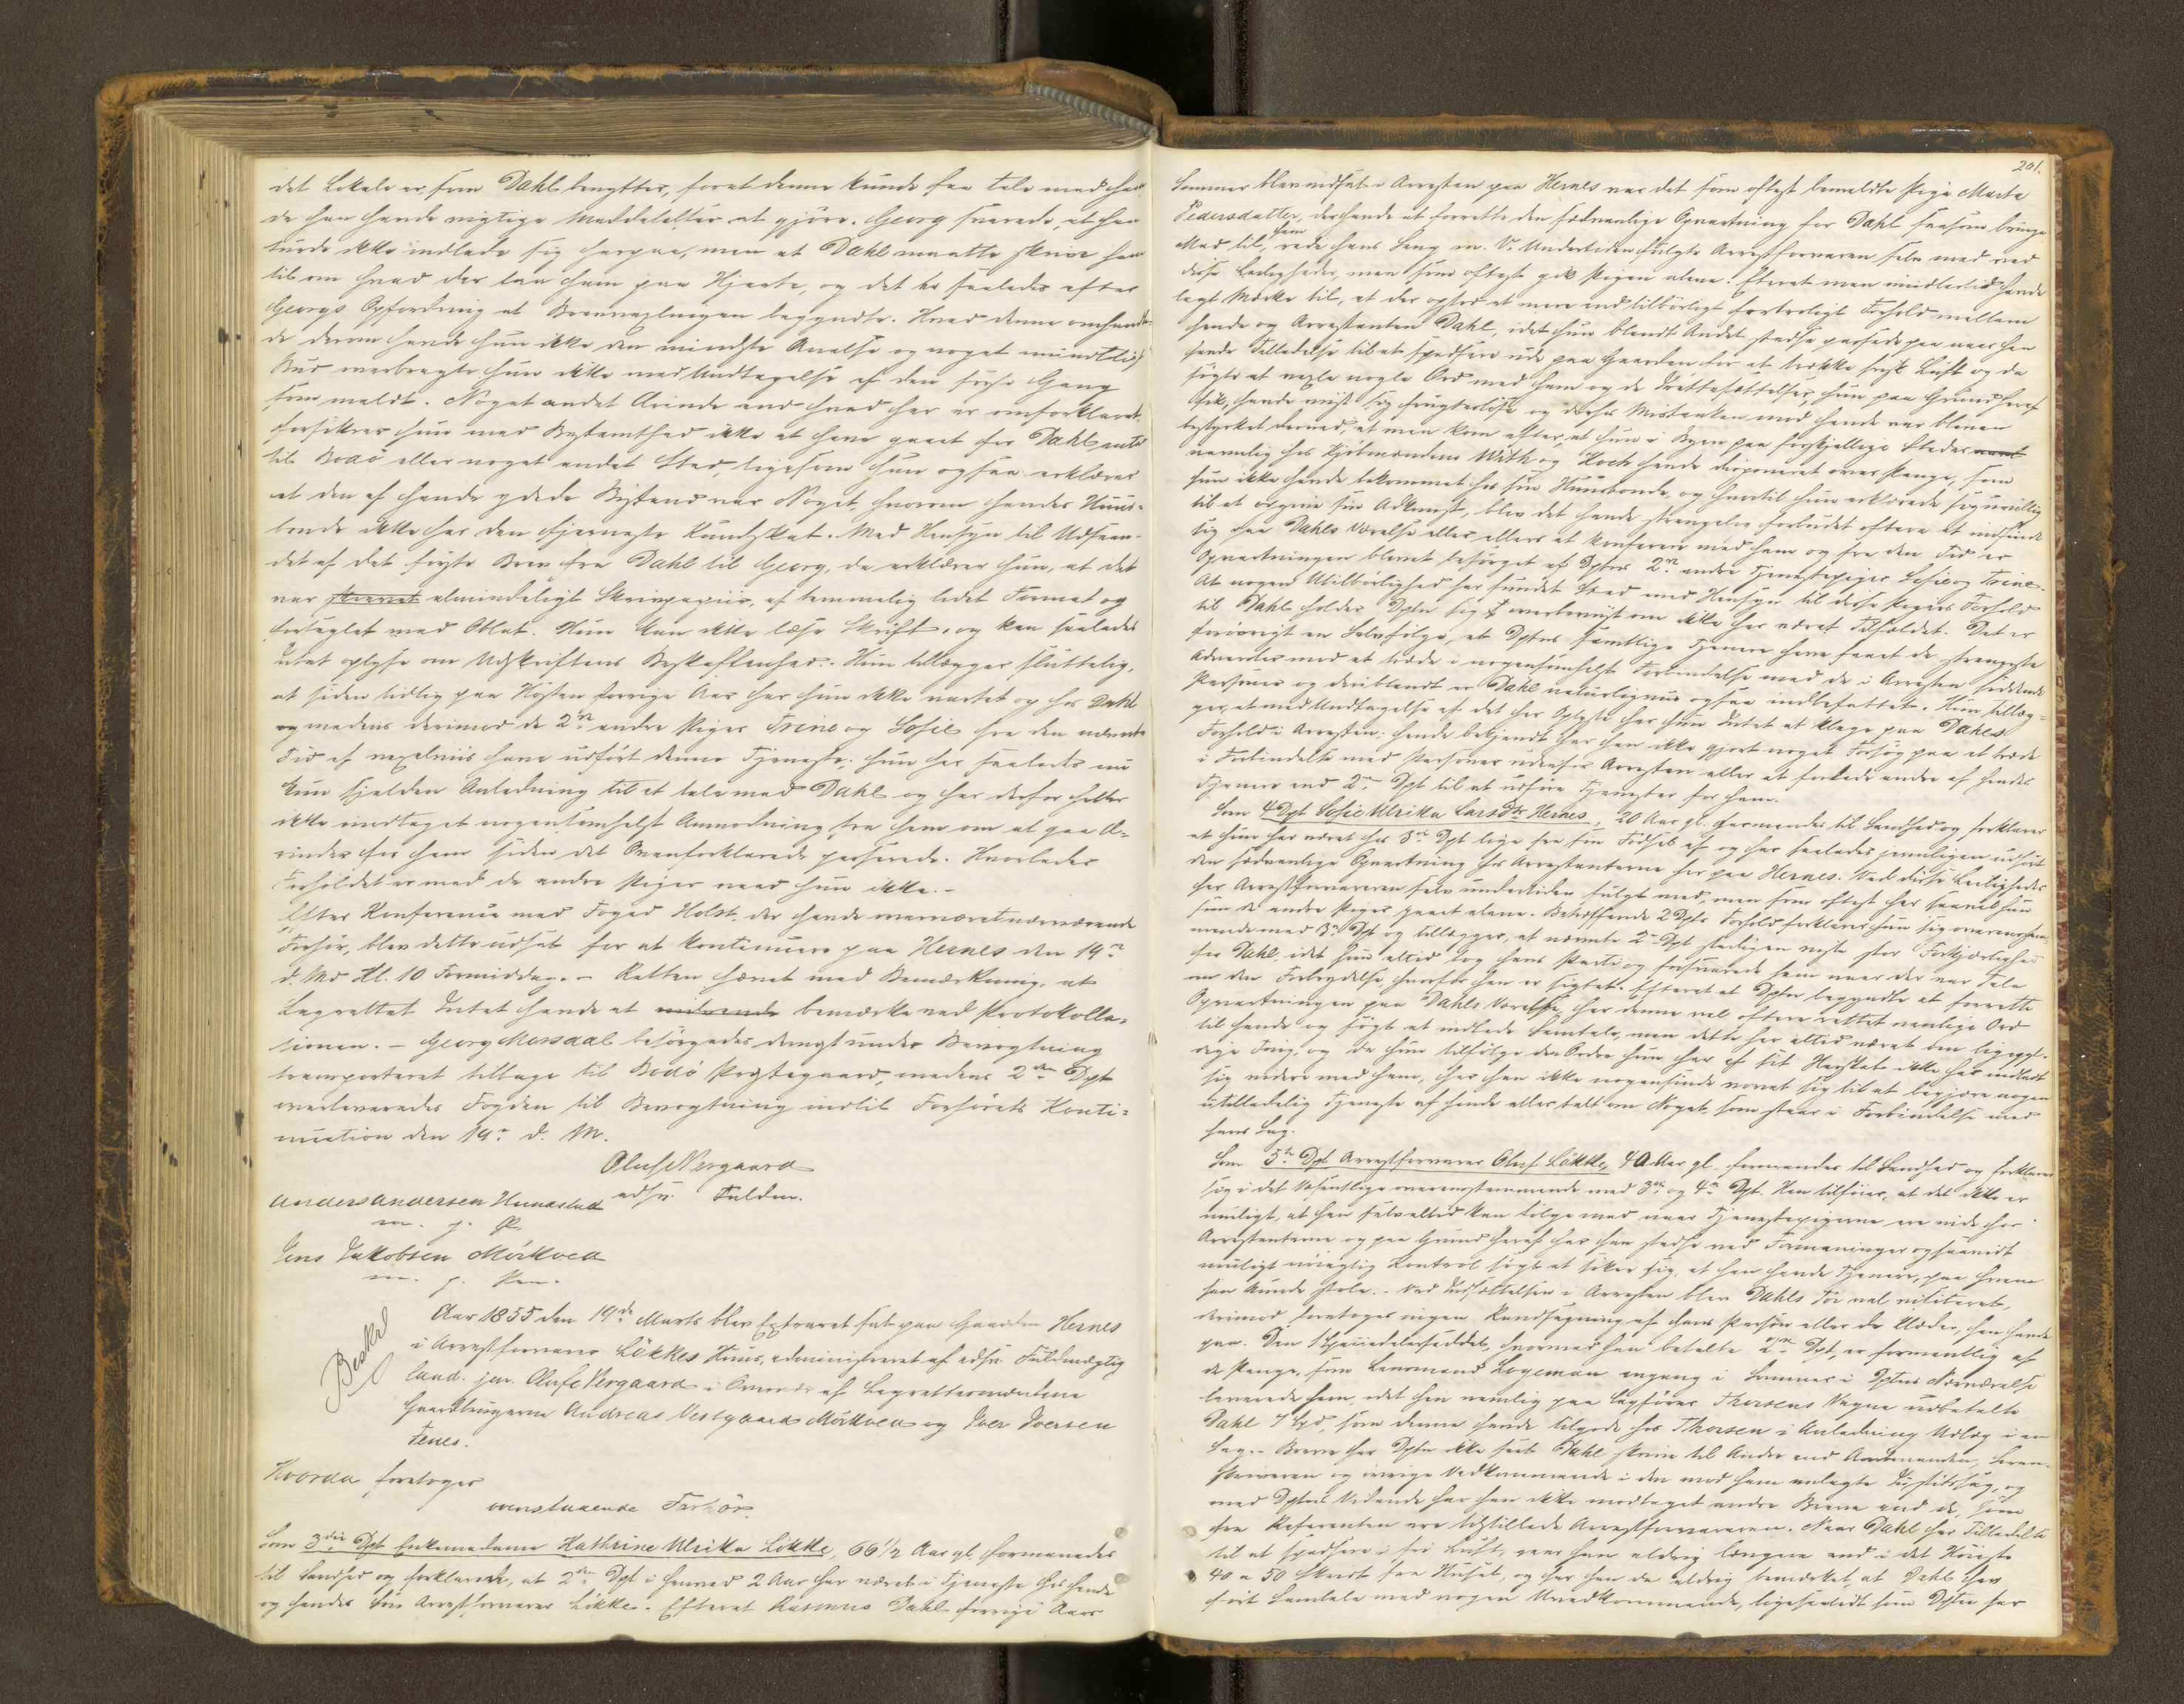 det Lokale er, som Dahl benytter, forat denne kunde faa tale med ham
da han havde vigtige Meddelelser at gjøre. Georg svarede, at han
turde ikke indlade sig herpaa, men at Dahl maatte skrive ham
til om hvad der laa ham paa Hjerte, og det er saaledes efter
Georgs Opfordring at Brevvexlingen begyndte. Hvad denne omhand-
de derom havde hun ikke den mindste Anelse og noget mundtligt
Bud overbragte hun ikke med Undtagelse af den første Gang
som meldt. Noget andet Ærinde end hvad her er omforklaret
forsikrer hun med Bestemthed ikke at have gaaet for Dahl enten
til Bodø eller noget andet Sted, ligesom hun ogsaa erklærer
at den af hende ydede Bistand var Noget, hvorom hendes Huus-
bonde ikke har den fjerneste Kundskab. Med Hensyn til Udseen-
det af det første Brev fra Dahl til Georg, da erklærer hun, at det
var skrevet almindeligt Skrivpapiir, af temmelig lidet Format og
forseglet med Oblat. Hun kan ikke læse Skrift, og kan saaledes
intet oplyse om Udskriftens Beskaffenhed. Hun tillægger sluttelig,
at siden tidlig paa Høsten forrige Aar har hun ikke vartet op hos Dahl
og medens derimod de 2de andre Piger Trine og Sofie fra den nævnte
Tid af vexelviis have udført denne Tjeneste; hun har saaledes nu
kun sjelden Anledning til at tale med Dahl og har derfor heller
ikke modtaget nogensomhelst Anmodning fra ham om at gaa Æ-
rinder for ham siden det Ovenforklarede passerede. Hvorledes
Forholdet er med de andre Piger veed hun ikke. –
Efter Konference med Foged Holst, der havde overværet nærværende
Forhør, blev dette udsat for at kontinuere paa Hernes den 19de
d. Md Kl. 10 Formiddag. – Retten hævet med Bemærkning, at
Lagrettet Intet havde at bemærke ved Protokolla-
tionen. – Georg Mørsdal besørgedes derigt under Bevogtning
transporteret tilbage til Bodø Præstegaard, medens 2den Dpt
overleveredes Fogden til Bevogtning indtil Forhørets Konti-
nuation den 19de d. M.
Oluf Nergaard
edsv. Fuldm.
Anders Andersen Hunastad
m. f. P.
Jens Jakobsen Mørkved
m. f. Pen.
Beskd
Aar 1855 den 19de Marts blev Extraret sat paa Gaarden Hernes
i Arrestforvarer Løkkes Huus, administreret af edsv. Fuldmægtig
Cand. jur. Oluf Nergaard i Overvær af Lagrettesmændene
Gaardbrugerne Andreas Vestgaard Mørkved og Iver Iversen
Fenes.
Hvorda foretoges
ovenstaaende Forhør.
Som 3die Dpt Enkemadame Kathrine Ulrika Løkke, 66 1/2 Aar gl. formanedes
til Sandhed og forklarede, at 2den Dpt i henved 2 Aar har været i Tjeneste hos hende
og hendes Søn Arrestforvarer Løkke. Efterat Rasmus Dahl forrige Aars
201.
Sommer blev indsat i Arresten paa Hernes var det som oftest bemeldte Pige Marta
Pedersdatter, der havde at forrette den sædvanlige Opvartning for Dahl saasom bringe
Mad til ham, rede hans Seng m. V. Undertiden fulgte Arrestforvareren selv med ved
disse Leiligheder, men som oftest gik Pigen alene. Efterat man imidlertid havde
lagt Mærke til, at der opstod et mere end tilbørligt fortroligt Forhold mellem
hende og Arrestanten Dahl, idet hun blandt Andet stedse passede paa naar han
havde Tilladelse til at spadsere ude paa Gaarden for at trække frisk Luft og da
søgte at vexle nogle Ord med ham og de Irettesættelser, hun paa Grund heraf
fik, havde viist sig frugtesløse og derhos Mistanken mod hende var bleven
bestyrket derved, at man kom efter, at hun i Byen paa forskjellige Steder
navnlig hos Kjøbmændene With og Koch havde disponeret over Penge, som
hun ikke havde bekommet hos sin Huusbonde, og hvortil hun erklærede sig uvillig
til at opgive sin Adkomst, blev det hende strengeligen forbudet oftere at indfinde
sig paa Dahls Værelse eller ellers at konferere med ham og fra den Tid er
Opvartningen blevet besørget af Dptus 2de andre Tjenestepiger Sofie og Trine.
At nogen Utilbørlighed har fundet Sted med Hensyn til disse Pigers Forhold
til Dahl holder Dptn sig overbeviist om ikke har været Tilfældet. Det er
forøvrigt en Selvfølge, at Dptus samtlige Tjenere have faaet de strengeste
Advarsler mod at træde i nogensomhelst Forbindelse med de i Arresten siddende
Personer og deriblandt er Dahl naturligviis ogsaa indbefattet. Hun tillæg-
ger, at med Undtagelse af det her Oplyste har hun Intet at klage paa Dahls
Forhold i Arresten; hende bekjendt har han ikke gjort noget Forsøg paa at træde
i Forbindelse med Personer udenfor Arresten eller at forlede andre af hendes
Tjenere end 2den Dpt til at udføre Tjenester for ham.
Som 4 Dpt Sofie Ulrika Larsdtr Hernes, 20 Aar gl. formanedes til Sandhed og forklarer
at hun har været hos 3die Dpt lige fra sin Fødsel af og har saaledes jevnligen udført
den sædvanlige Opvartning hos Arrestanterne her paa Hernes. Ved disse Leiligheder
har Arrestforvareren selv undertiden fulgt med, men som oftest har saavel hun
som de andre Piger gaaet alene. Betræffende 2 Dpts Forhold forklarer hun sig overensstem-
mende med 3die Dpt og tillægger, at nævnte 2den Dpt stedigen viste stor Forkjærlighed
for Dahl, idet hun altid tog hans Parti og forsvarede ham naar der var Tale
om den Forbrydelse, hvorfor han er sigtet. Efterat Dptn begyndte at forrette
Opvartningen paa Dahls Værelse, har denne vel oftere rettet venlige Ord
til hende og søgt at indlede Samtale, men dette har altid været om ligegyl-
dige Ting, og da hun tilfølge den Ordre hun har af sit Herskab ikke har indladt
sig videre med ham, har han ikke nogensinde vovet sig til at begjære nogen
utilladelig Tjeneste af hende eller talt om Noget, som staar i Forbindelse med
hans Sag.
Som 5te Dpt Arrestforvarer Oluf Løkke, 40 Aar gl. formanedes til Sandhed og forklarer
sig i det Væsentlige overensstemmende med 3die og 4de Dpt. Han tilføier, at det ikke er
muligt, at han selv altid kan følge med naar Tjenestepigerne ere inde hos
Arrestanterne og paa Grund heraf har han stedse ved Formaninger og saavidt
muligt nøiagtig Kontrol søgt at sikre sig, at han havde Tjenere, paa hvem
han kunde stole. – Ved Indsættelsen i Arresten blev Dahls Tøi vel visiteret,
derimod foretoges ingen Randsagning af hans Person eller de Klæder, han havde
paa. Den 1 Speciedalerseddel, hvormed han betalte 2den Dpt, er formentlig af
de Penge, som Lensmand Logeman engang i Sommer i Dptus Nærværelse
leverede ham, idet han nemlig paa Sagfører Thorsens Vegne udbetalte
Dahl 7 Spd, som denne havde tilgode hos Thorsen i Anledning Udlæg i en
Sag. – Breve har Dptn ikke seet Dahl skrive til Andre end Amtmanden, Soren-
skriveren og øvrige Vedkommende i den mod ham anlagte Justitssag, og
med Dptus Vidende har han ikke modtaget andre Breve end de, som
fra Referenten ere tilstillede Arrestforvareren. Naar Dahl har Tilladelse
til at spadsere i fri Luft, gaar han aldrig længere end i det Høieste
40 a 50 Skridt fra Huset, og har han da aldrig bemærket, at Dahl har
ført Samtale med nogen Uvedkommende, ligesaalidt som Dptn har